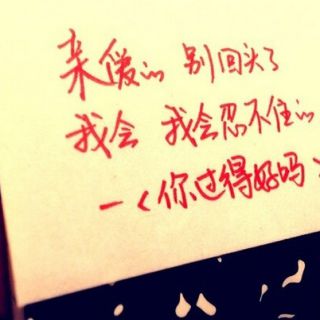 亲爱的 别回头了
我会 我会忍不住的
一<你过得好吗>